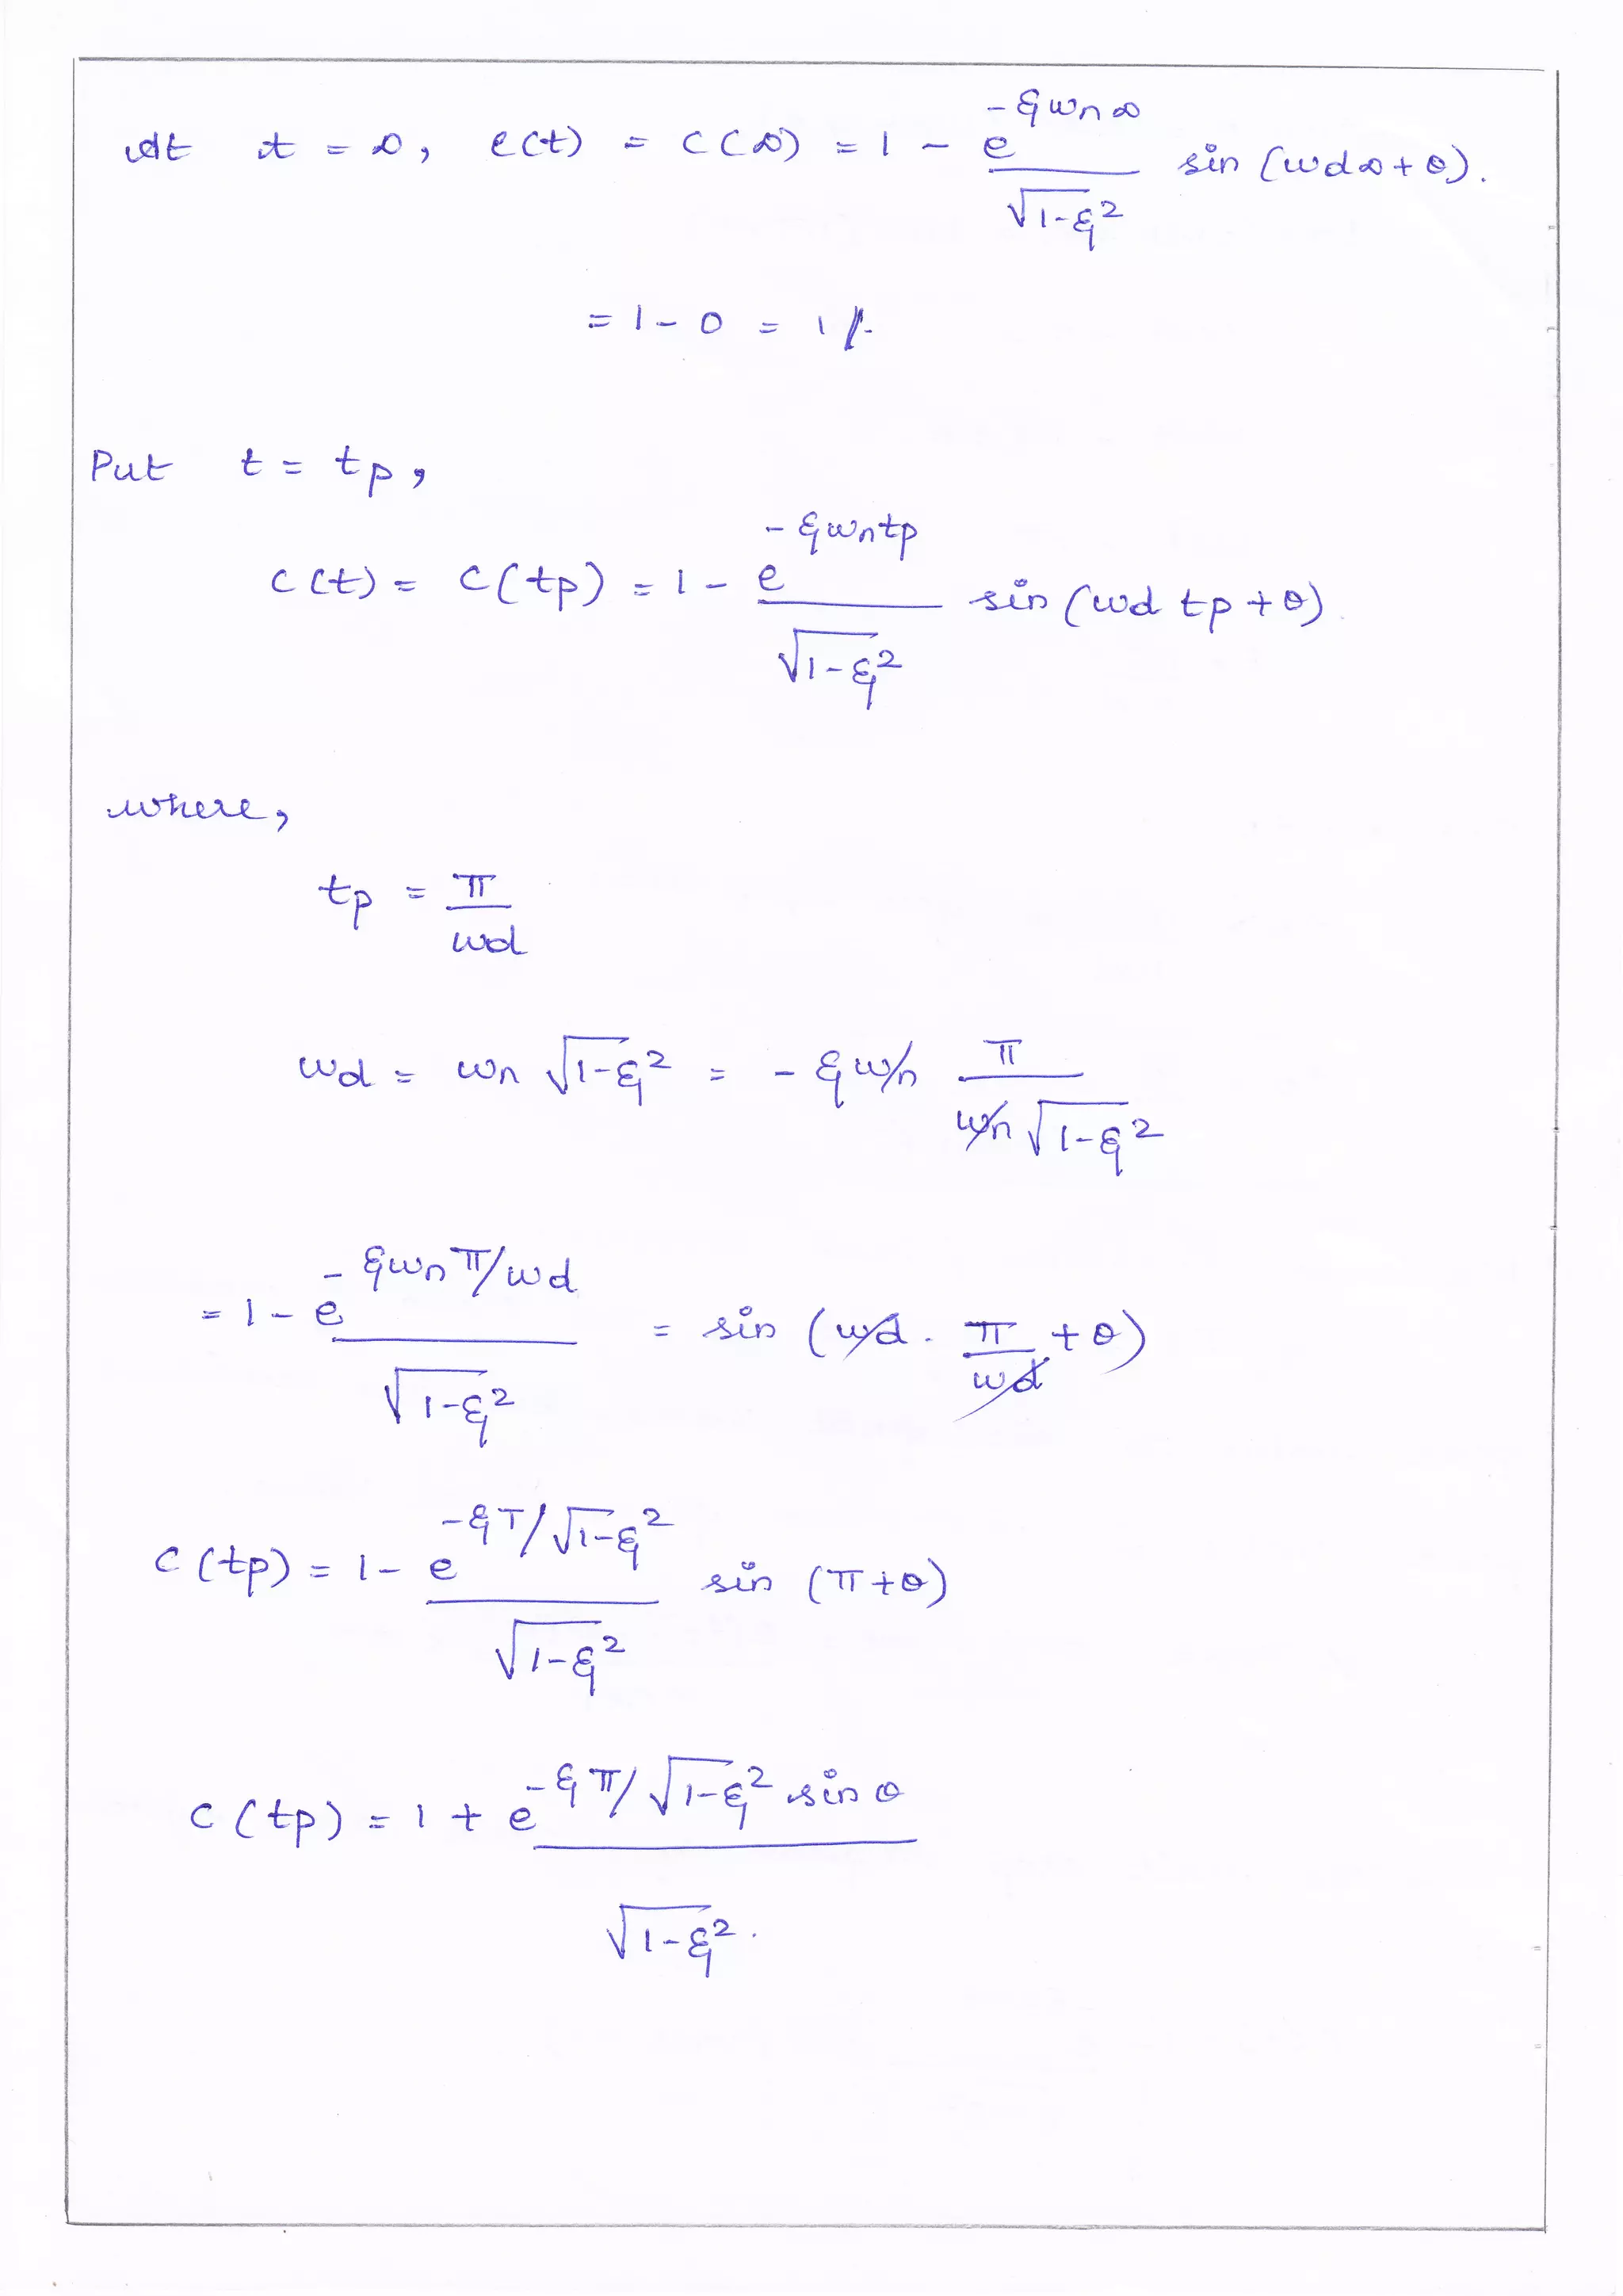 At t = ∞, c(t) = c(∞) = 1 - e^{-ξωn∞}/√(1-ξ²) sin (ωd∞ + θ).
= 1 - 0 = 1 //.
Put t = tp,
c(t) = c(tp) = 1 - e^{-ξωntp}/√(1-ξ²) sin (ωd tp + θ).
where,
tp = π/ωd
ωd = ωn √(1-ξ²) = - ξωn π/(ωn √(1-ξ²))
= 1 - e^{-ξωnπ/ωd}/√(1-ξ²) = sin (ωd . π/ωd + θ)
c(tp) = 1 - e^{-ξπ/√(1-ξ²)}/√(1-ξ²) sin (π + θ)
c(tp) = 1 + e^{-ξπ/√(1-ξ²)} sin θ/√(1-ξ²).